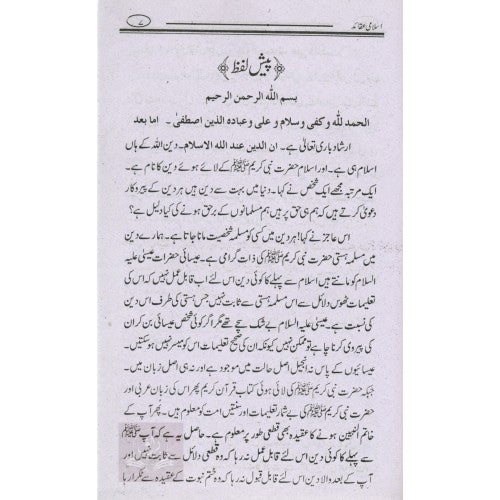 اسلامی عقائد ۷
﴿پیش لفظ﴾
بسم اللہ الرحمن الرحیم
الحمد للہ و کفی وسلام و علی و عبادہ الذین اصطفیٰ۔ اما بعد
ارشاد باری تعالیٰ ہے۔ ان الدین عند اللہ الاسلام۔ دین اللہ کے ہاں
اسلام ہی ہے۔ اور اسلام حضرت نبی کریم ﷺ کے لائے ہوئے دین کا نام ہے۔
ایک مرتبہ مجھے ایک شخص نے کہا۔ دنیا میں بہت سے دین ہیں ہر دین کے پیروکار
دعویٰ کرتے ہیں کہ ہم ہی حق پر ہیں ہم مسلمانوں کے برحق ہونے کی کیا دلیل ہے؟
اس عاجز نے کہا! ہر دین میں کسی کو مسلمہ شخصیت مانا جاتا ہے۔ ہمارے دین
میں مسلمہ ہستی حضرت نبی کریم ﷺ کی ذات گرامی ہے۔ عیسائی حضرات عیسیٰ علیہ
السلام کو مانتے ہیں اسلام سے پہلے کا کوئی دین اس لئے اب قابل عمل نہیں کہ اس کی
تعلیمات ٹھوس دلائل سے اس مسلمہ ہستی سے ثابت نہیں جس ہستی کی طرف اس دین
کی نسبت ہے۔ عیسیٰ علیہ السلام بے شک سچے تھے مگر اگر کوئی شخص عیسائی بن کر ان
کی پیروی کرنا چاہے تو ممکن نہیں کیونکہ ان کی صحیح تعلیمات اس کو میسر نہیں ہوسکتیں۔
عیسائیوں کے پاس نہ انجیل اصل حالت میں موجود ہے اور نہ ہی اصل زبان میں۔
جبکہ حضرت نبی کریم ﷺ کی لائی ہوئی کتاب قرآن کریم پھر اس کی زبان عربی اور
حضرت نبی کریم ﷺ کی بے شمار تعلیمات اور سنتیں امت کو معلوم ہیں۔ پھر آپ کے
خاتم النبیین ہونے کا عقیدہ بھی قطعی طور پر معلوم ہے۔ حاصل یہ ہے کہ آپ ﷺ
سے پہلے کا کوئی دین اس لئے قابل عمل نہ رہا کہ وہ قطعی دلائل سے ثابت نہیں اور
آپ کے بعد والا دین اس لئے قابل قبول نہ رہا کہ وہ ختم نبوت کے عقیدہ سے ٹکرا رہا